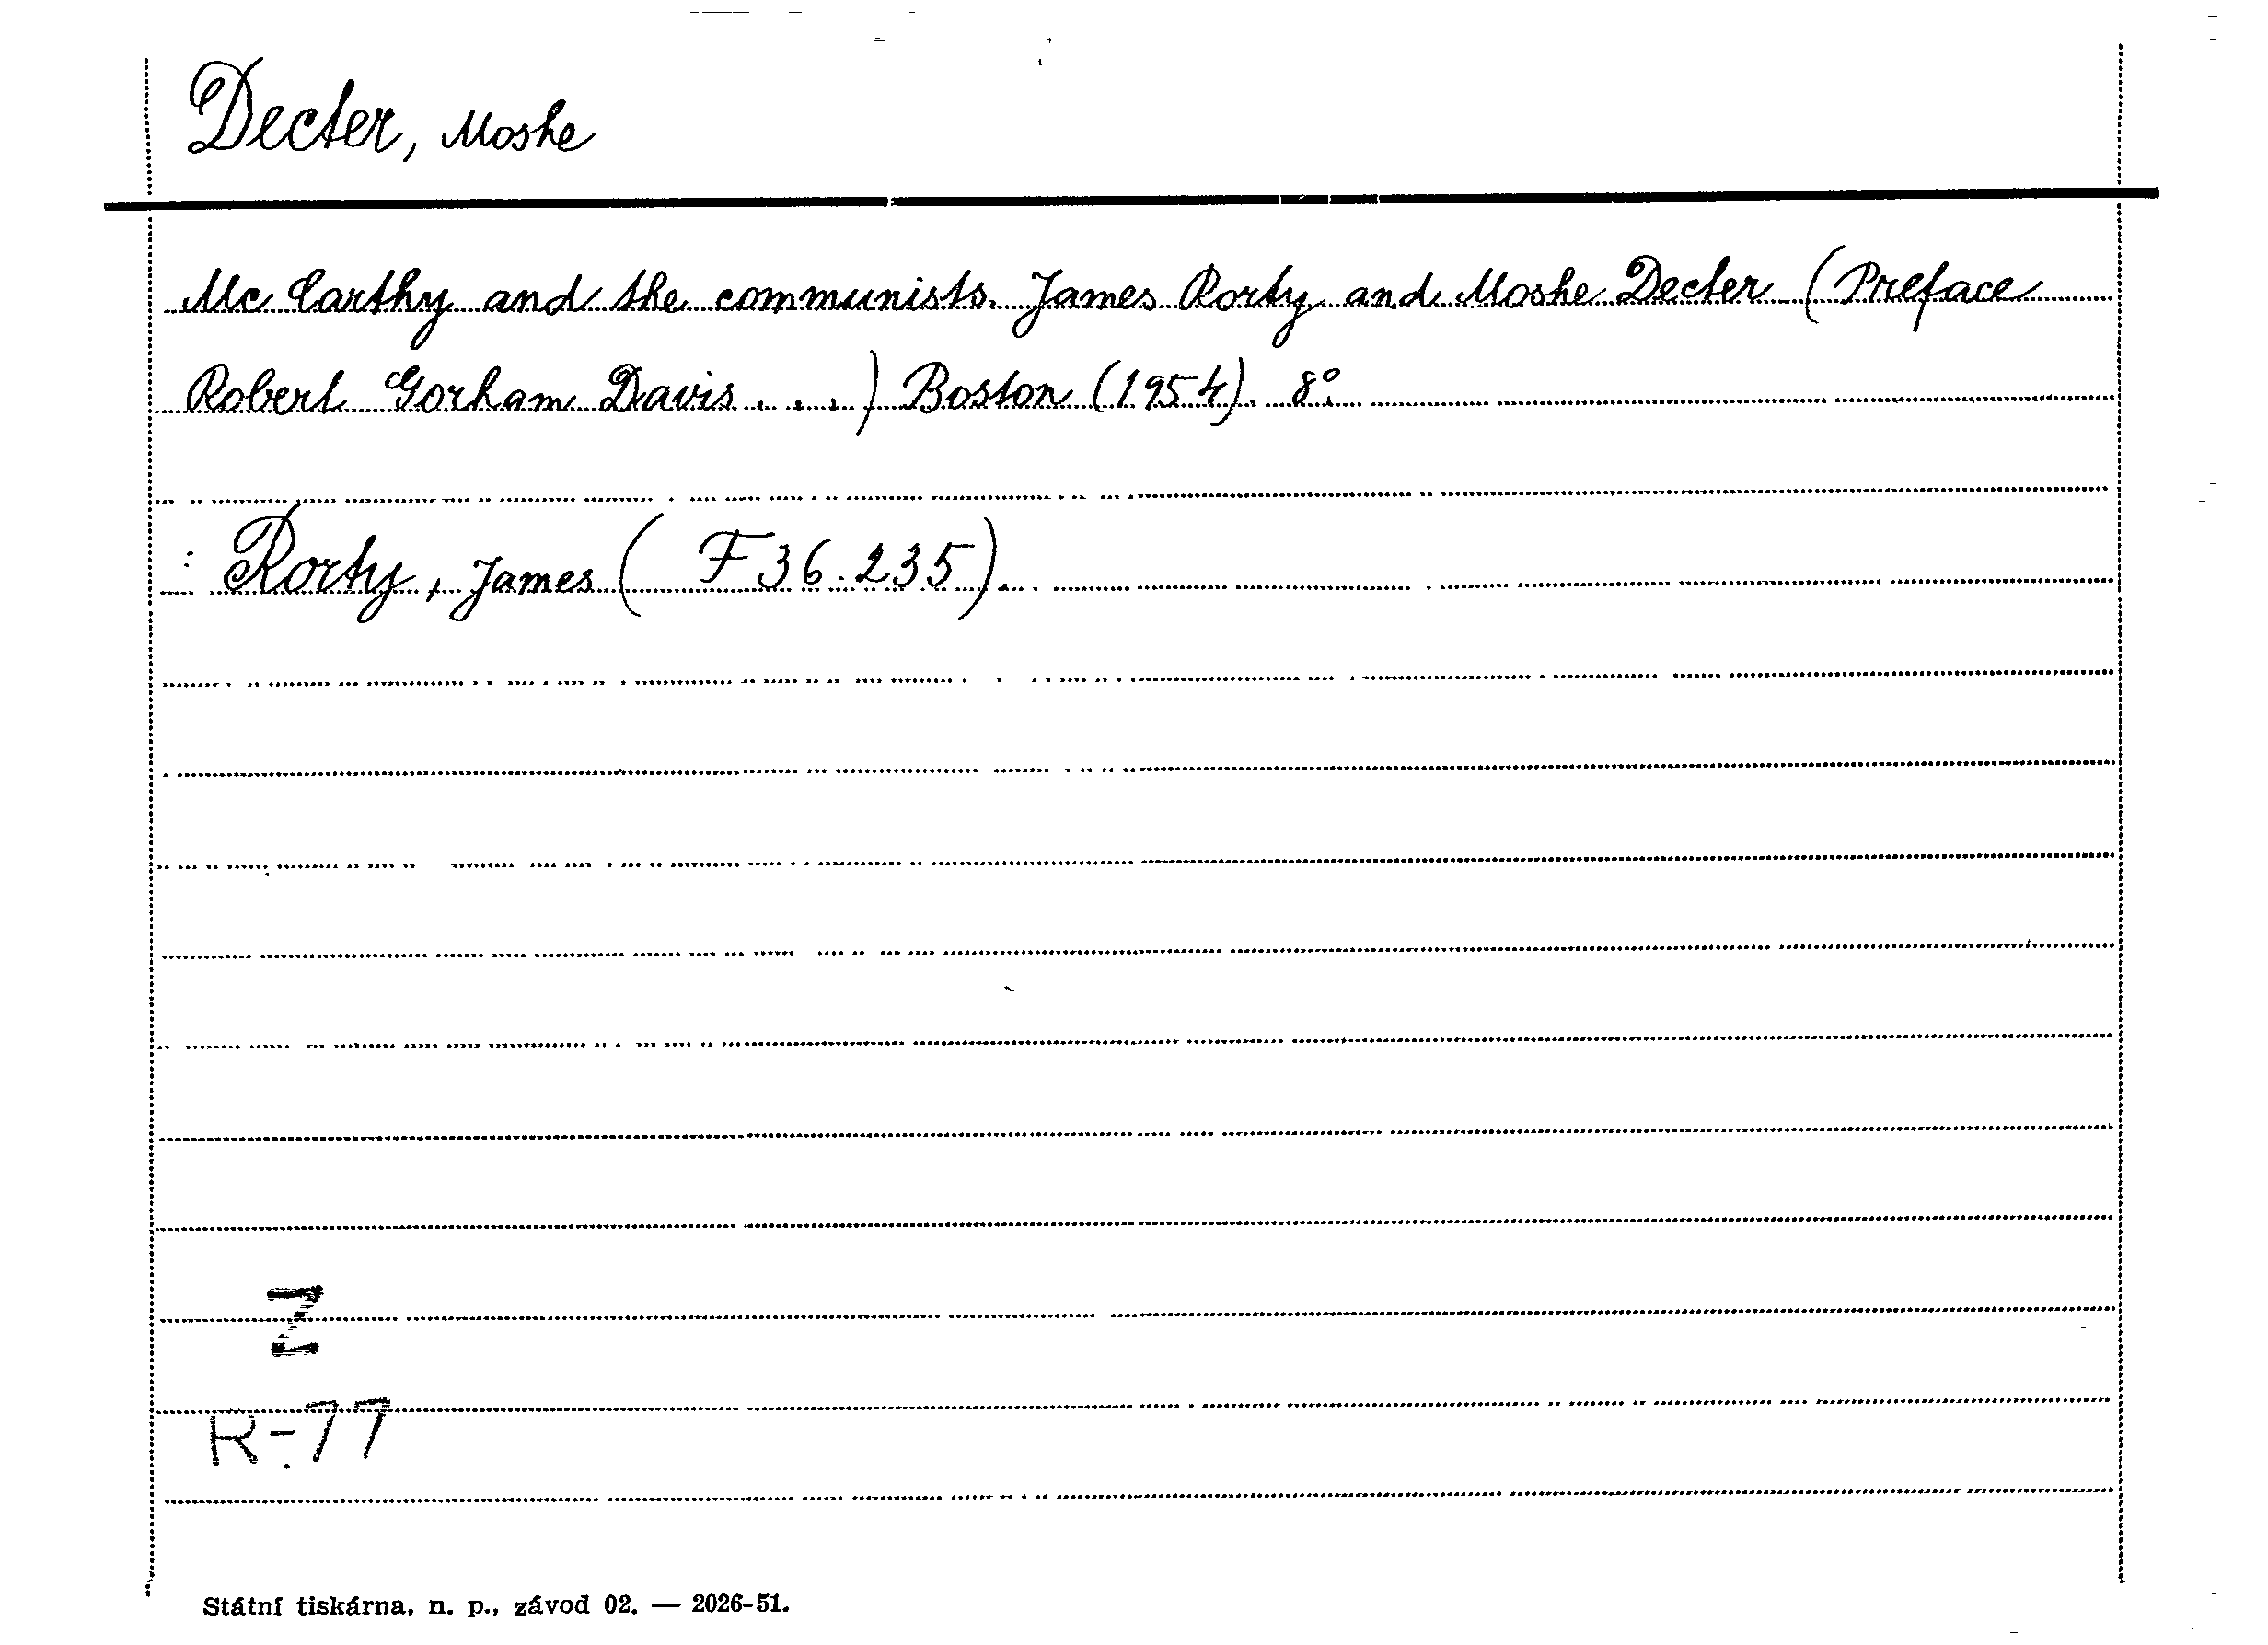 Decter, Moshe
Mc Carthy and the communists. James Rorty and Moshe Decter (Preface
Robert Gorham Davis . . .) Boston (1954). 8°.
: Rorty, James ( F 36.235).
Z
R-77
Státní tiskárna, n. p., závod 02. — 2026-51.